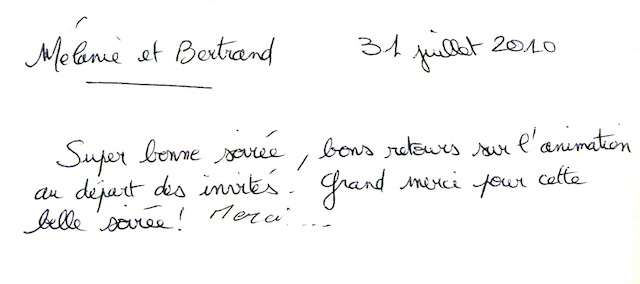 Mélanie et Bertrand 31 juillet 2010
Super bonne soirée, bons retours sur l'animation
au départ des invités. Grand merci pour cette
belle soirée! Merci....